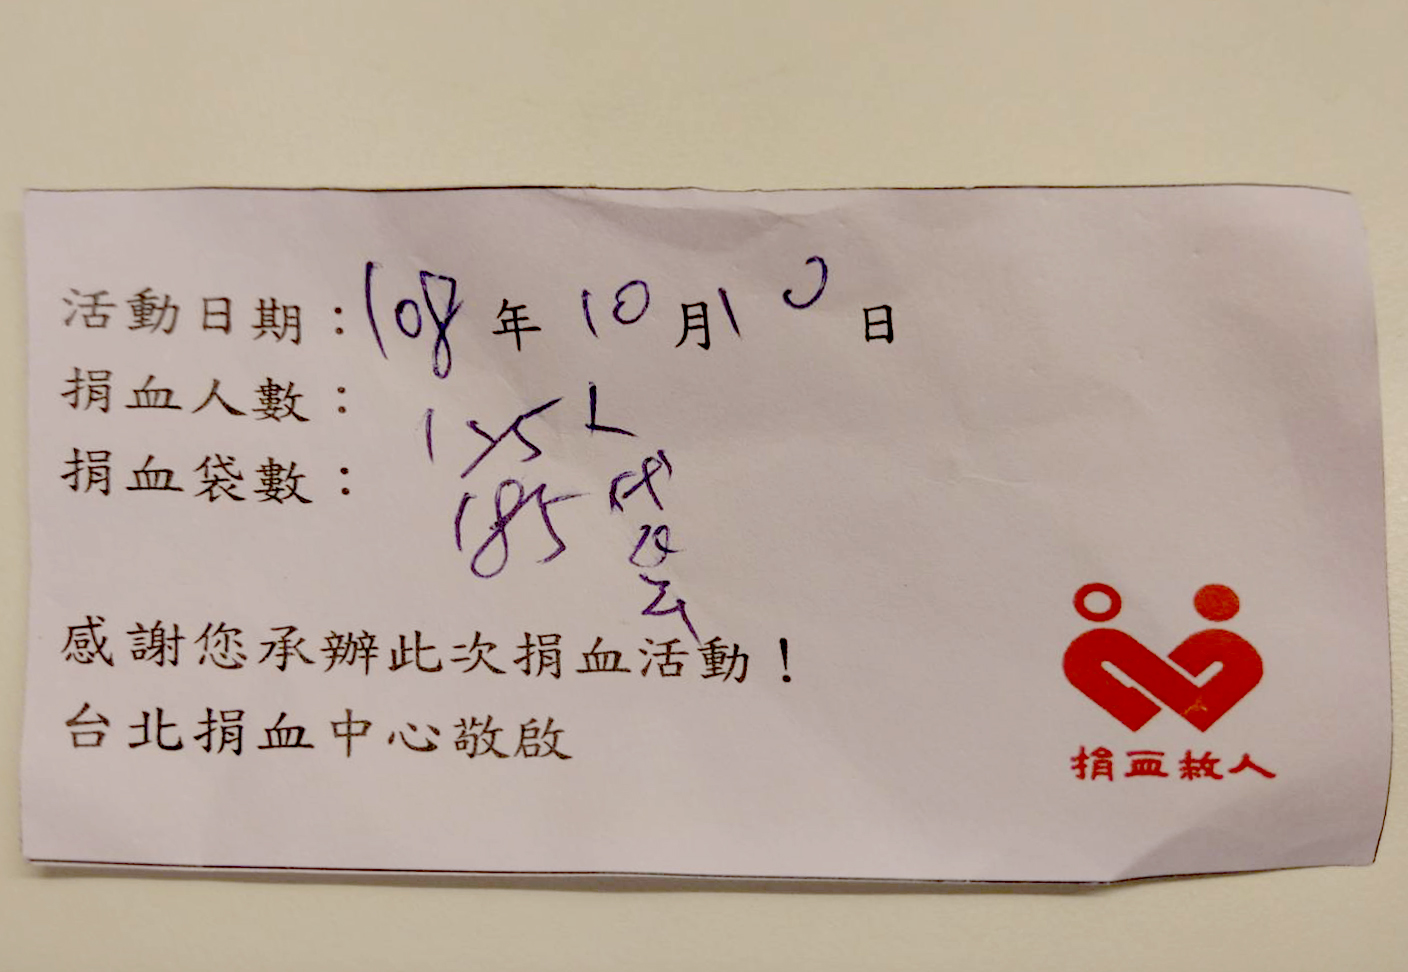 活動日期：108年10月10日
捐血人數：
捐血袋數：185袋
感謝您承辦此次捐血活動！
台北捐血中心敬啟
捐血救人